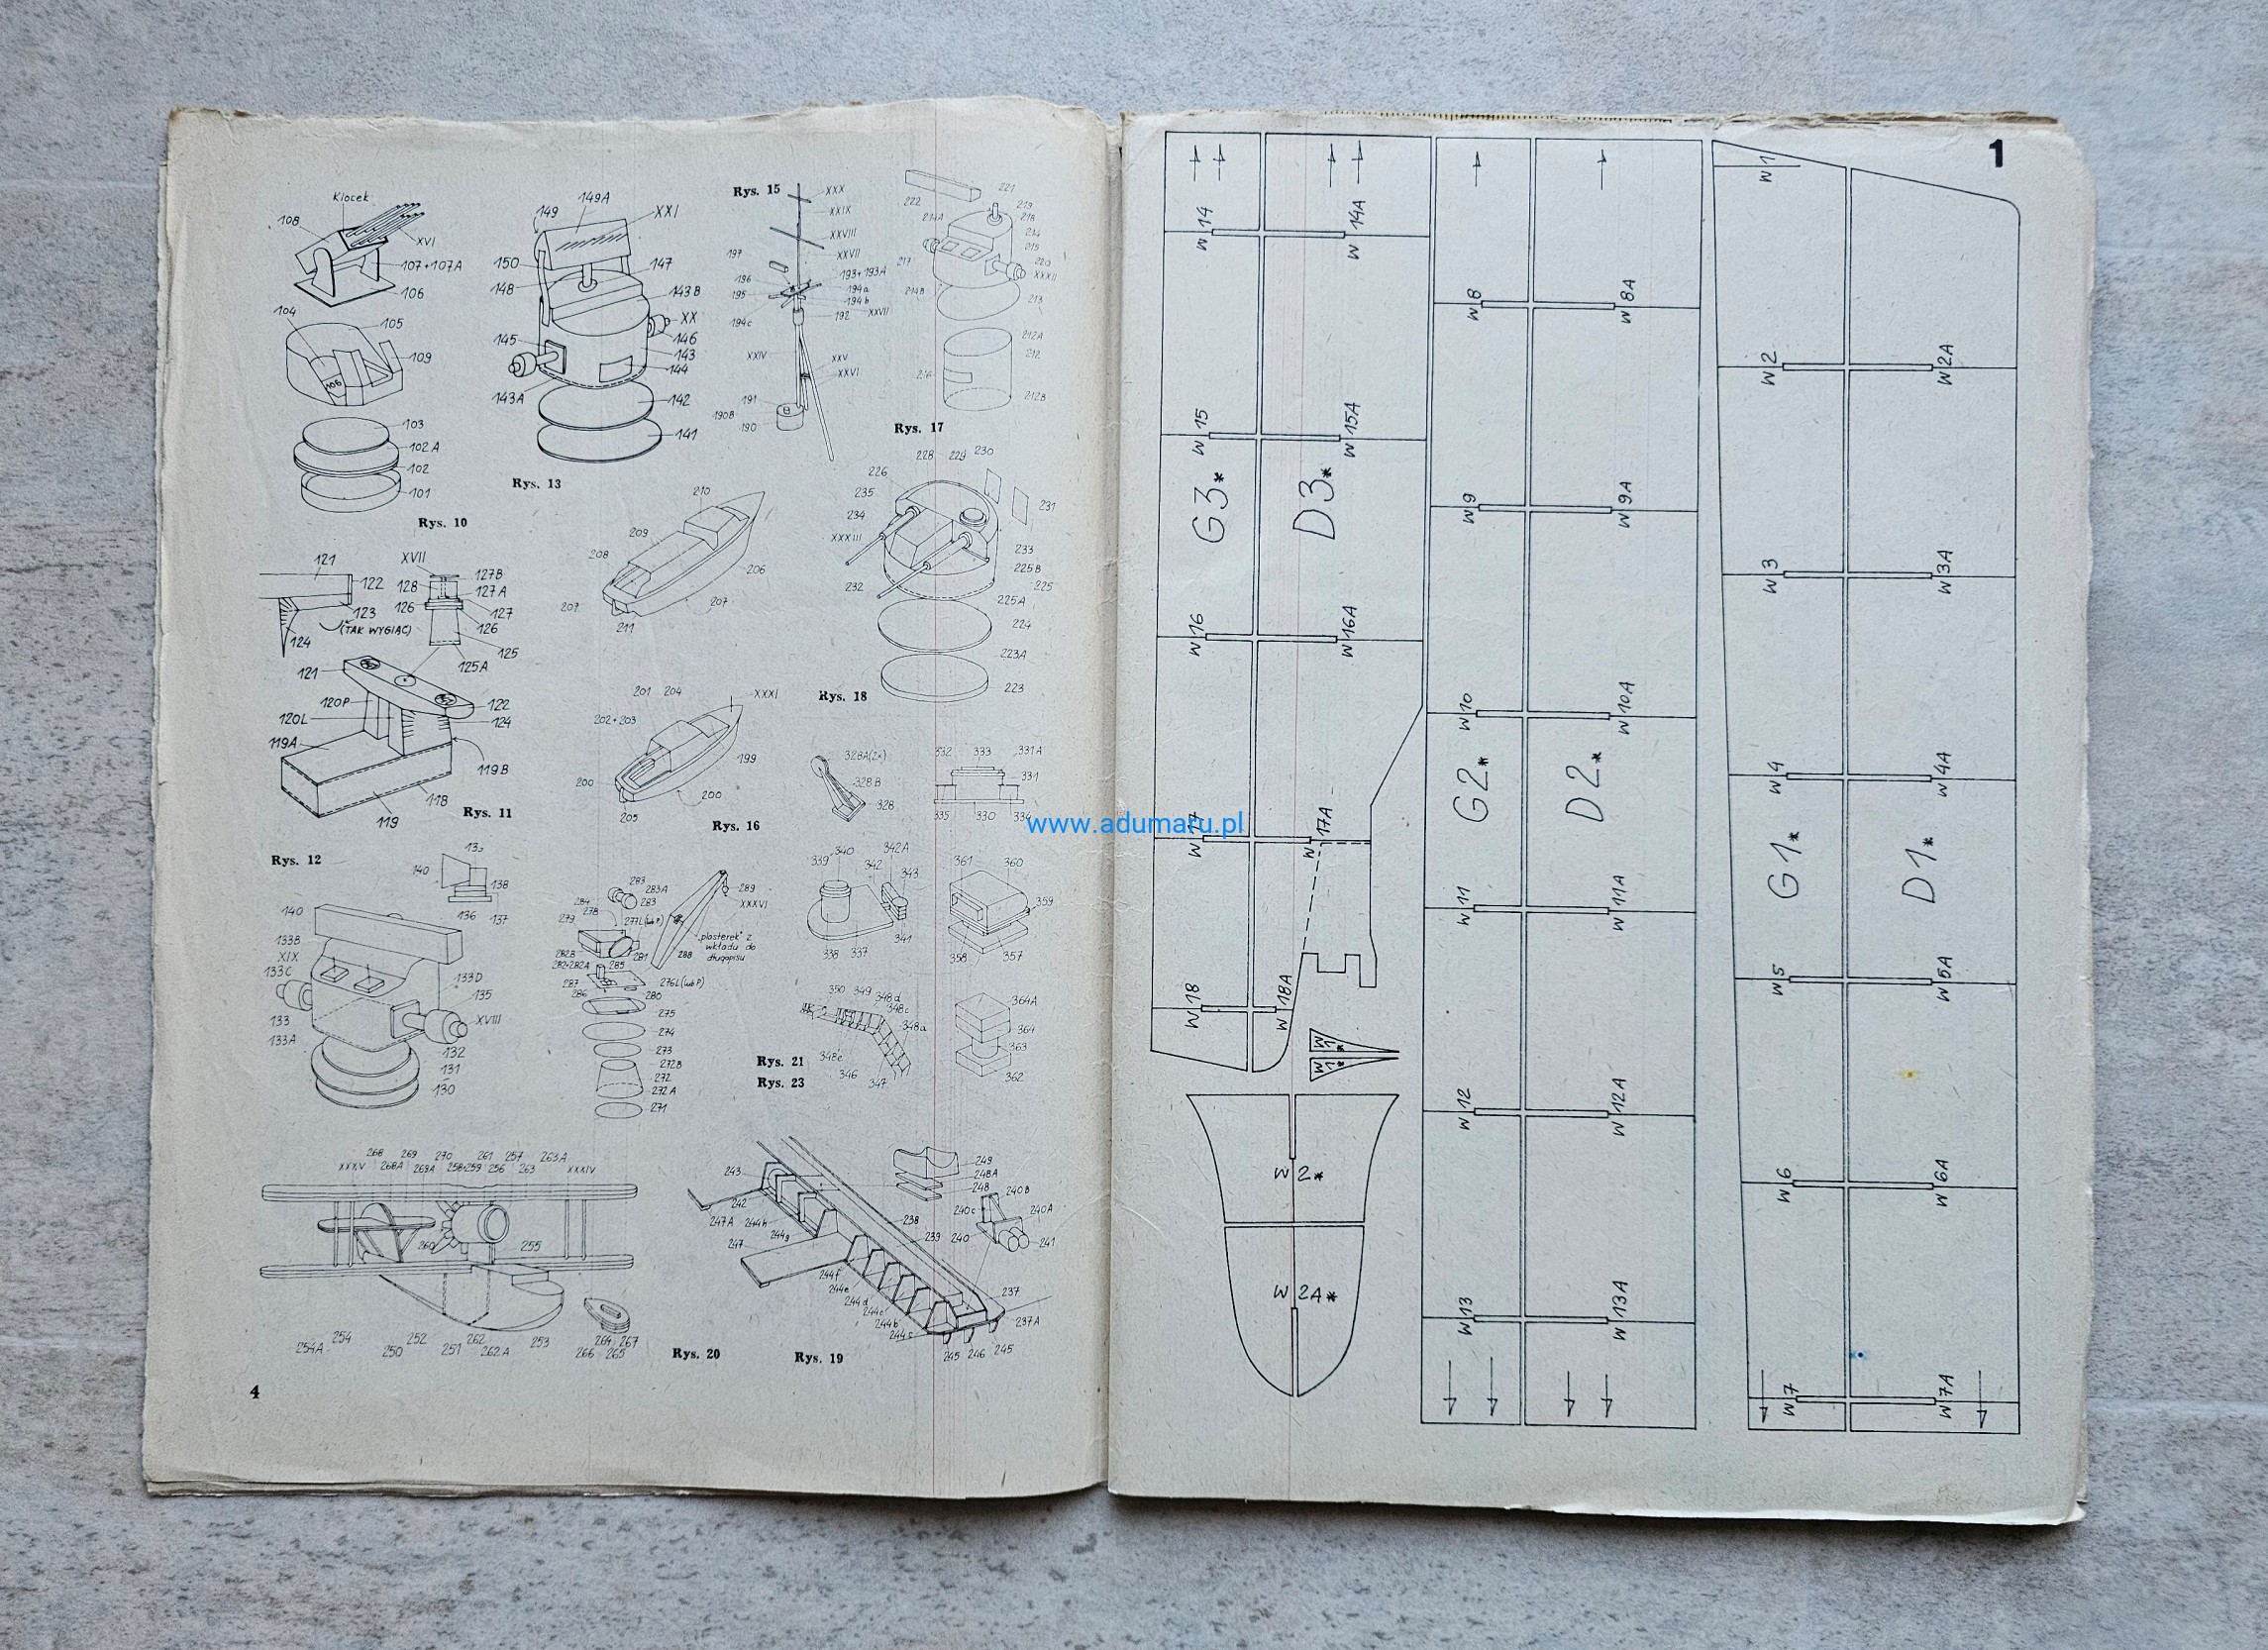 Klocek
108
XVI
107+107A
106
104
105
109
106
103
102A
102
101
Rys. 10
149
149A
XXI
150
147
148
143B
XX
145
146
143
144
143A
142
141
Rys. 13
Rys. 15
XXX
XXIX
XXVIII
XXVII
197
196
193+193A
195
194a
194b
194c
192
XXVII
XXIV
XXV
XXVI
191
190B
190
221
222
219
218
214A
214
215
217
220
XXXII
214B
213
212A
212
212B
Rys. 17
121
XVII
122
128
127B
127A
126
127
123
(TAK WYGIĄĆ)
124
126
125
125A
121
120P
122
120L
124
119A
119B
118
119
Rys. 11
210
209
208
206
207
207
211
228
229
230
226
235
231
234
XXXIII
233
225B
232
225
225A
224
223A
223
Rys. 18
201
204
XXXI
202+203
199
200
200
205
Rys. 16
328A(2x)
328B
328
332
333
331A
331
335
330
334
Rys. 12
140
138
136
137
140
133B
XIX
133C
133D
135
133
XVIII
133A
132
131
130
283
283A
283
284
278
279
277L(lub P)
289
XXXVI
"plasterek" z
wkładu do
długopisu
288
282B
282+282A
281
285
287
276L(lub P)
286
280
275
274
273
272B
272
272A
271
339
340
342A
342
343
338
337
341
361
360
359
358
357
350
349
348d
348c
348a
348e
346
347
364A
364
363
362
Rys. 21
Rys. 23
268
269
270
261
257
263A
XXXV
268A
269A
258+259
256
263
XXXIV
260
255
254
254A
252
250
251
262
262A
253
264
267
266
265
Rys. 20
243
242
247A
244h
244g
247
249
248A
248
240B
240c
240A
238
239
240
241
244f
244e
244d
244c
244b
244c
237
237A
245
246
245
Rys. 19
4
www.adumaru.pl
1
W 14
W 14A
W 15
W 15A
G3*
D3*
W 16
W 16A
W 17
W 17A
W 18
W 18A
W1*
W1*
W 2*
W 2A*
W 8
W 8A
W 9
W 9A
W 10
W 10A
G2*
D2*
W 11
W 11A
W 12
W 12A
W 13
W 13A
W 1
W 2
W 2A
W 3
W 3A
W 4
W 4A
G1*
D1*
W 5
W 5A
W 6
W 6A
W 7
W 7A